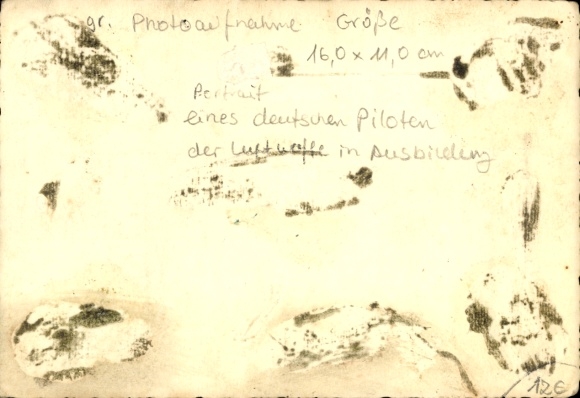 gr. Photoaufnahme Größe
16,0 x 11,0 cm
Portrait
eines deutschen Piloten
der Luftwaffe in Ausbildung
12€